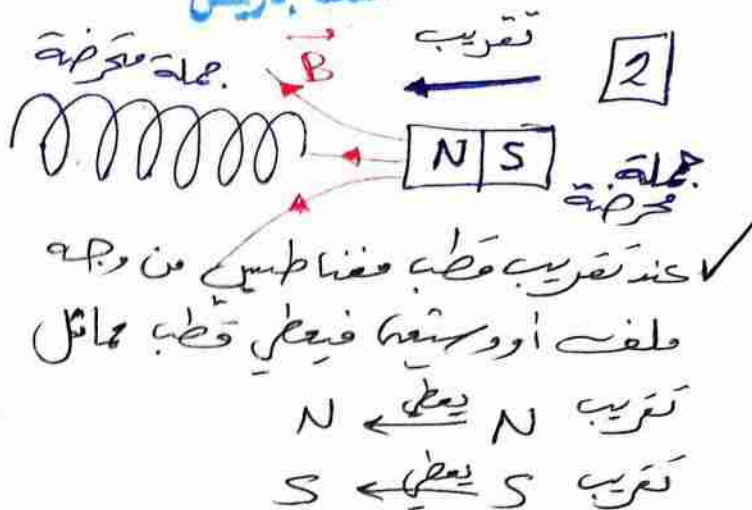 تقريب
2
جملة متحرضة
B
N S
جملة محرضة
✓ عند تقريب قطب مغناطيس من وجه
ملف أو وشيعة فيعطي قطب مماثل
تقريب N يعطي N
تقريب S يعطي S